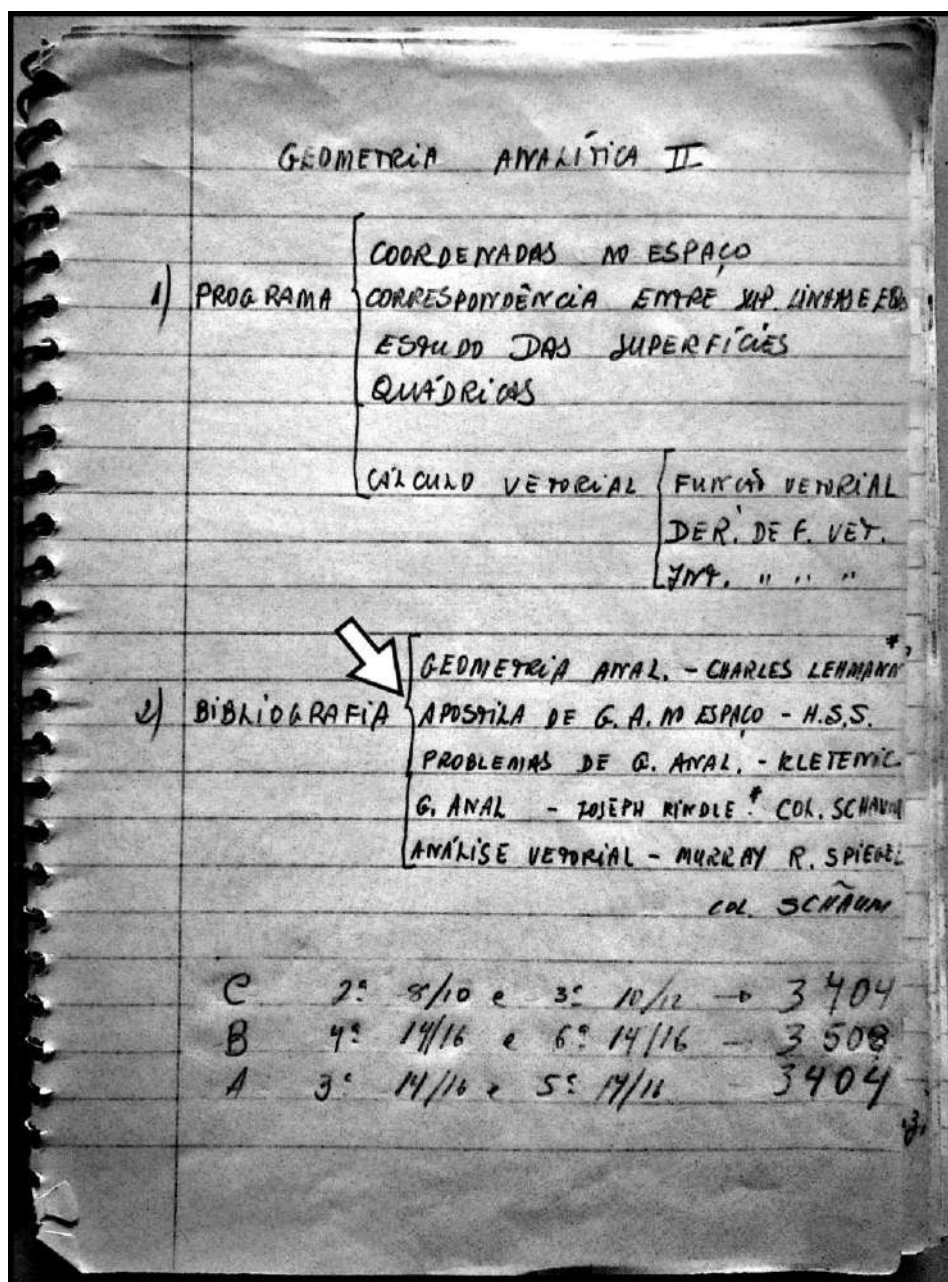 GEOMETRIA ANALÍTICA II
COORDENADAS NO ESPAÇO
1) PROGRAMA CORRESPONDÊNCIA ENTRE SUP. LINHAS E
ESTUDO DAS SUPERFÍCIES
QUÁDRICAS
CÁLCULO VETORIAL FUNÇÃO VETORIAL
DER. DE F. VET.
INT. " " "
GEOMETRIA ANAL. - CHARLES LEHMANN*
2) BIBLIOGRAFIA APOSTILA DE G. A. NO ESPAÇO - H.S.S.
PROBLEMAS DE G. ANAL. - KLETENIC
G. ANAL - JOSEPH KINDLE* COL. SCHAUM
ANÁLISE VETORIAL - MURRAY R. SPIEGEL
COL. SCHAUM
C 2ª 8/10 e 3ª 10/12 → 3404
B 4ª 14/16 e 6ª 14/16 - 3508
A 3ª 14/16 e 5ª 14/16 3404